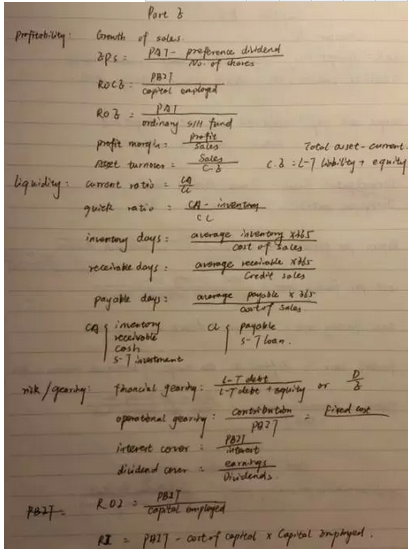 Part E
Profitability: Growth of sales.
EPS = PAT - preference dividend / No. of shares
ROCE = PBIT / capital employed
ROE = PAT / ordinary S/H fund
profit margin = profit / Sales
Total asset - current
Asset turnover = Sales / C.E
C.E = L-T liability + equity
liquidity: current ratio = CA / CL
quick ratio = CA - inventory / CL
inventory days = average inventory x365 / cost of sales
receivable days = average receivable x365 / Credit sales
payable days = average payable x 365 / cost of sales
CA { inventory
receivable
cash
s-T investment
CL { payable
s-T loan.
risk/gearing: financial gearing: L-T debt / L-T debt + equity or D / E
operational gearing: contribution / PBIT = Fixed cost
interest cover = PBIT / interest
dividend cover = earnings / Dividends.
PBIT =
ROI = PBIT / capital employed
RI = PBIT - cost of capital x Capital employed.